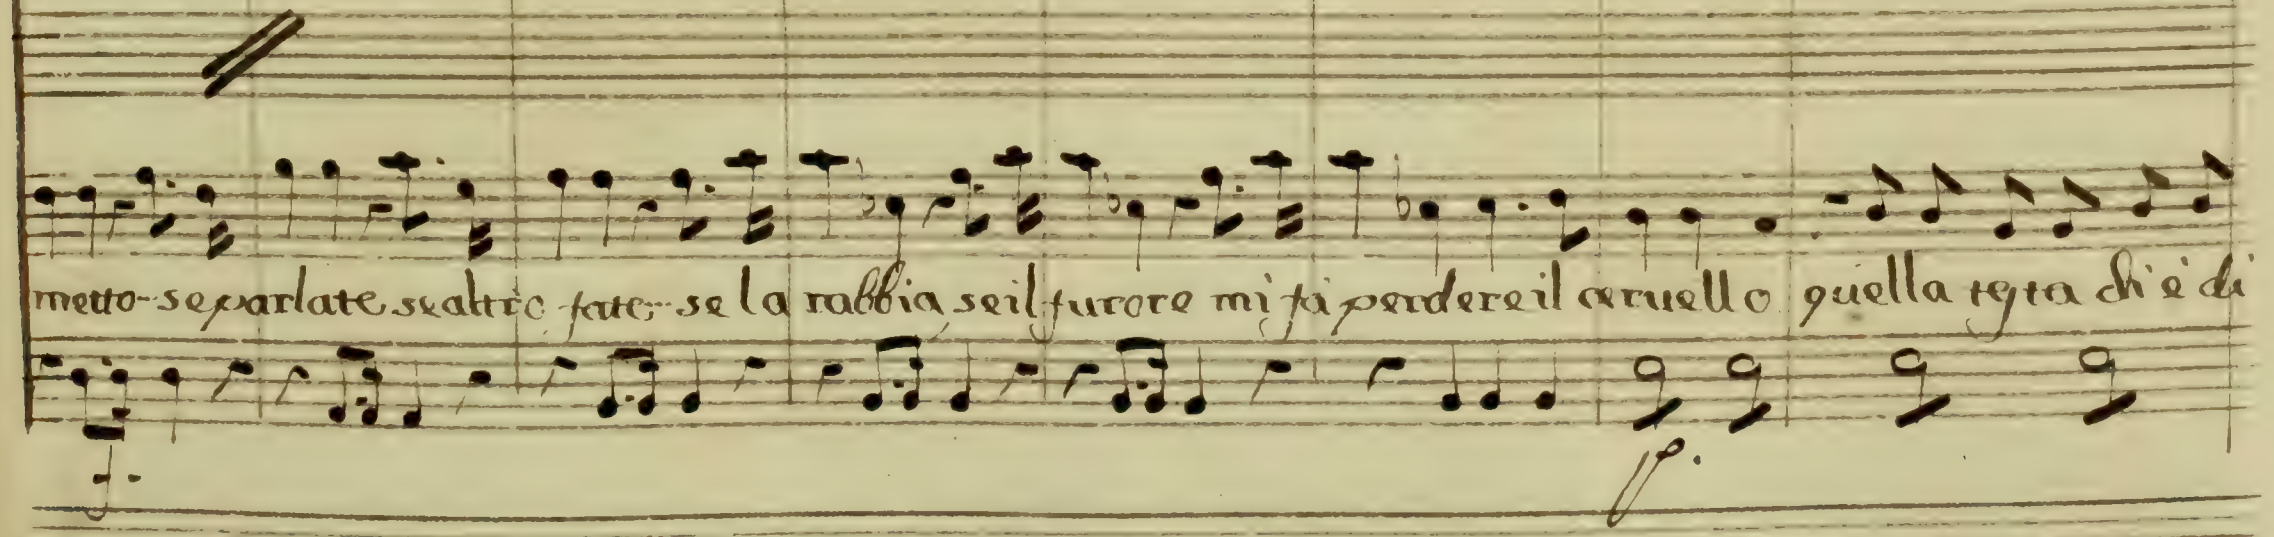 metto-- se parlate se altro fate-- se la rabbia se il furore mi fà perdere il ceruello quella testa ch'è di
f.
p.